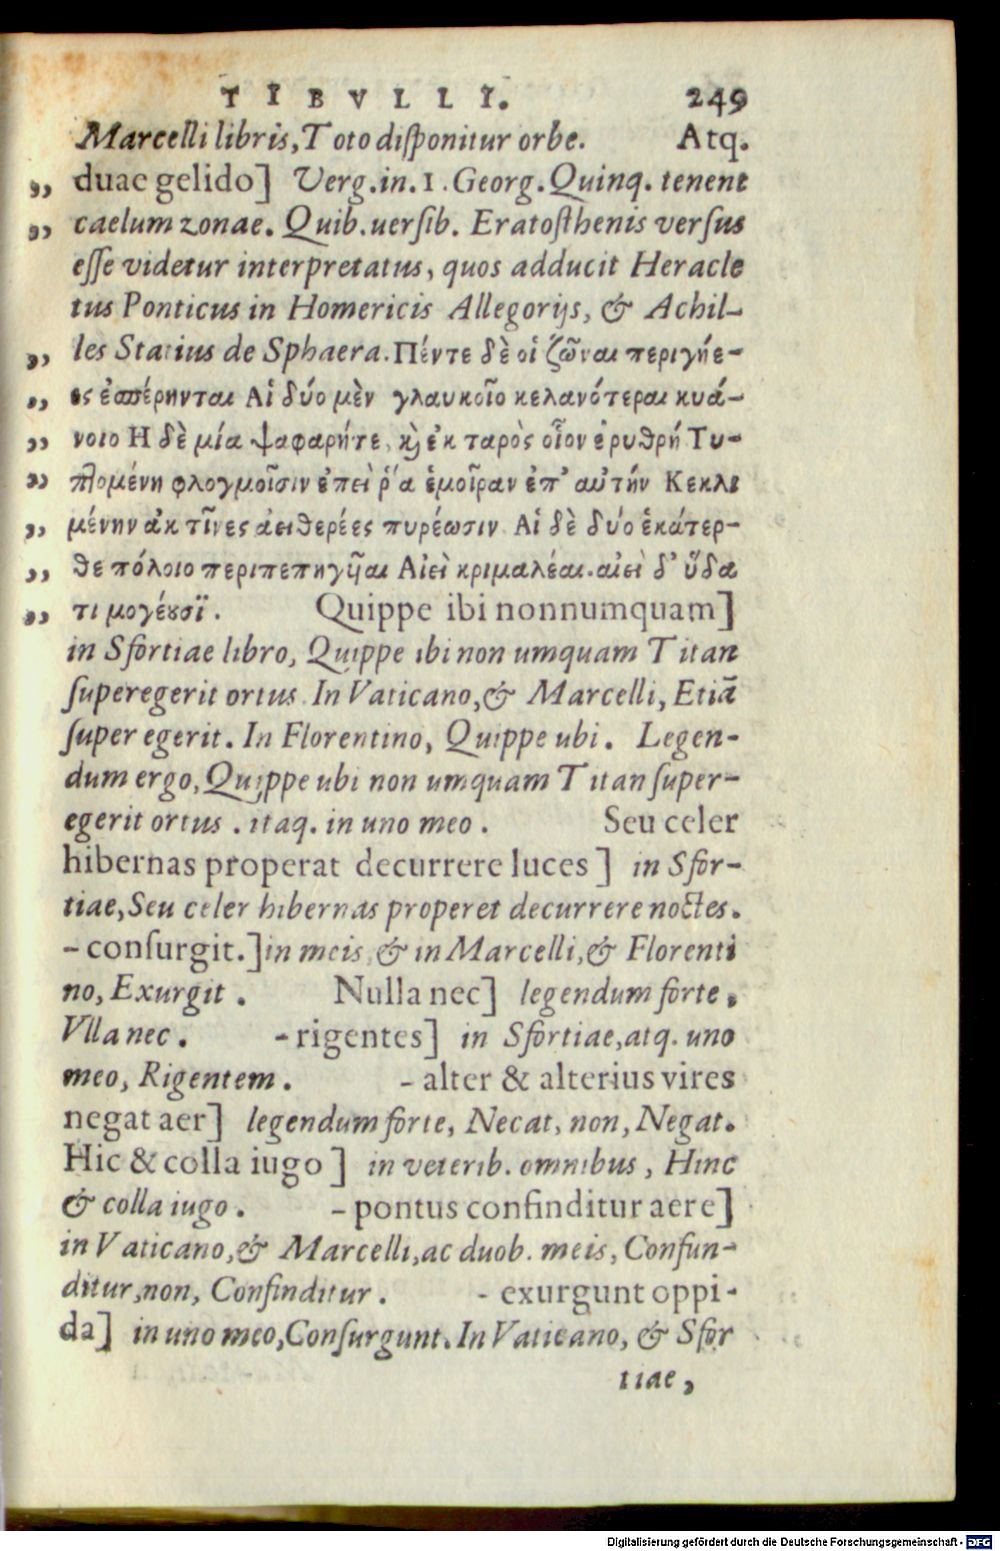 TIBVLLI. 249
Marcelli libris, Toto disponitur orbe. Atq.
„ duae gelido] Verg.in.1.Georg.Quinq. tenent
„ caelum zonae. Quib.uersib. Eratosthenis versus
esse videtur interpretatus, quos adducit Heracle
tus Ponticus in Homericis Allegorijs, & Achil-
„ les Statius de Sphaera. Πέντε δὲ οἱ ζῶναι περιγήε-
„ ες ἐσπέρηνται Αἱ δύο μὲν γλαυκοῖο κελανότεραι κυά-
„ νοιο Η δὲ μία ψαφαρήτε, κ̀ ἐκ ταρὸς οἷον ἐρυθρή Τυ-
„ πλομένη φλογμοῖσιν ἐπεὶ ῥ́α ἑμοῖραν ἐπ’ αὐτήν Κεκλι
„ μένην ἀκ τῖνες ἀειθερέες πυρέωσιν Αἱ δὲ δύο ἑκάτερ-
„ θε πόλοιο περιπεπηγῦαι Αἰεὶ κριμαλέαι. αἰεὶ δ’ ὕδα
„ τι μογέουσϊ. Quippe ibi nonnumquam]
in Sfortiae libro, Quippe ibi non umquam Titan
superegerit ortus. In Vaticano, & Marcelli, Etiā
super egerit. In Florentino, Quippe ubi. Legen-
dum ergo, Quippe ubi non umquam Titan super-
egerit ortus. itaq. in uno meo. Seu celer
hibernas properat decurrere luces] in Sfor-
tiae, Seu celer hibernas properet decurrere noctes.
- consurgit.] in meis & in Marcelli, & Florenti
no, Exurgit. Nulla nec] legendum forte,
Vlla nec. - rigentes] in Sfortiae, atq. uno
meo, Rigentem. - alter & alterius vires
negat aer] legendum forte, Necat, non, Negat.
Hic & colla iugo] in veterib. omnibus, Hinc
& colla iugo. - pontus confinditur aere]
in Vaticano, & Marcelli, ac duob. meis, Confun-
ditur, non, Confinditur. - exurgunt oppi-
da] in uno meo, Consurgunt. In Vaticano, & Sfor
tiae,
Digitalisierung gefördert durch die Deutsche Forschungsgemeinschaft - DFG